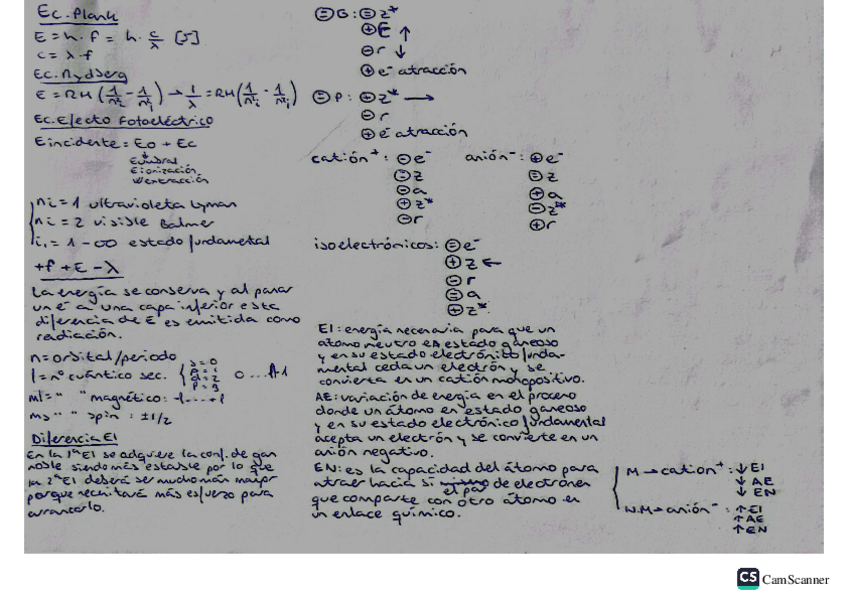 Ec. Plank
E = h · f = h · c/λ [J]
c = λ · f
Ec. Rydberg
E = RH (1/n²i - 1/n²j) → 1/λ = RH (1/n²i - 1/n²j)
Ec. Efecto Fotoeléctrico
E incidente = Eo + Ec
Eumbral
Eionización
Wextracción
ni = 1 ultravioleta Lyman
ni = 2 visible Balmer
i, = 1 - ∞ estado fundamental
+f + E - λ
La energía se conserva y al pasar
un e⁻ a una capa inferior esta
diferencia de E es emitida como
radiación.
n = orbital/periodo
l = nº cuántico sec. { s = 0 p = 1 d = 2 f = 3 0 ... n-1
ml = " " magnético: -l ... + l
ms " " spin : ±1/2
Diferencia EI
En la 1ª EI se adquiere la conf. de gas
noble siendo más estable por lo que
la 2ª EI deberá ser mucho más mayor
porque necesitará más esfuerzo para
arrancarlo.
⊜ G : ⊜ z*
⊕ E ↑
⊖ r ↓
⊕ e⁻ atracción
⊜ P : ⊕ z* →
⊖ r
⊕ e⁻ atracción
catión⁺ : ⊖ e⁻
⊜ z
⊖ a
⊕ z*
⊖ r
anión⁻ : ⊕ e⁻
⊜ z
⊕ a
⊖ z*
⊕ r
isoelectrónicos: ⊜ e⁻
⊕ z ←
⊖ r
⊜ a
⊕ z*
EI: energía necesaria para que un
átomo neutro en estado gaseoso
y en su estado electrónico funda-
mental ceda un electrón y se
convierta en un catión monopositivo.
AE: variación de energía en el proceso
donde un átomo en estado gaseoso
y en su estado electrónico fundamental
acepta un electrón y se convierte en un
anión negativo.
EN: es la capacidad del átomo para
atraer hacia sí el par de electrones
que comparte con otro átomo en
un enlace químico.
M → cation⁺ : ↓ EI
↓ AE
↓ EN
N.M → anión⁻ : ↑ EI
↑ AE
↑ EN
CS CamScanner